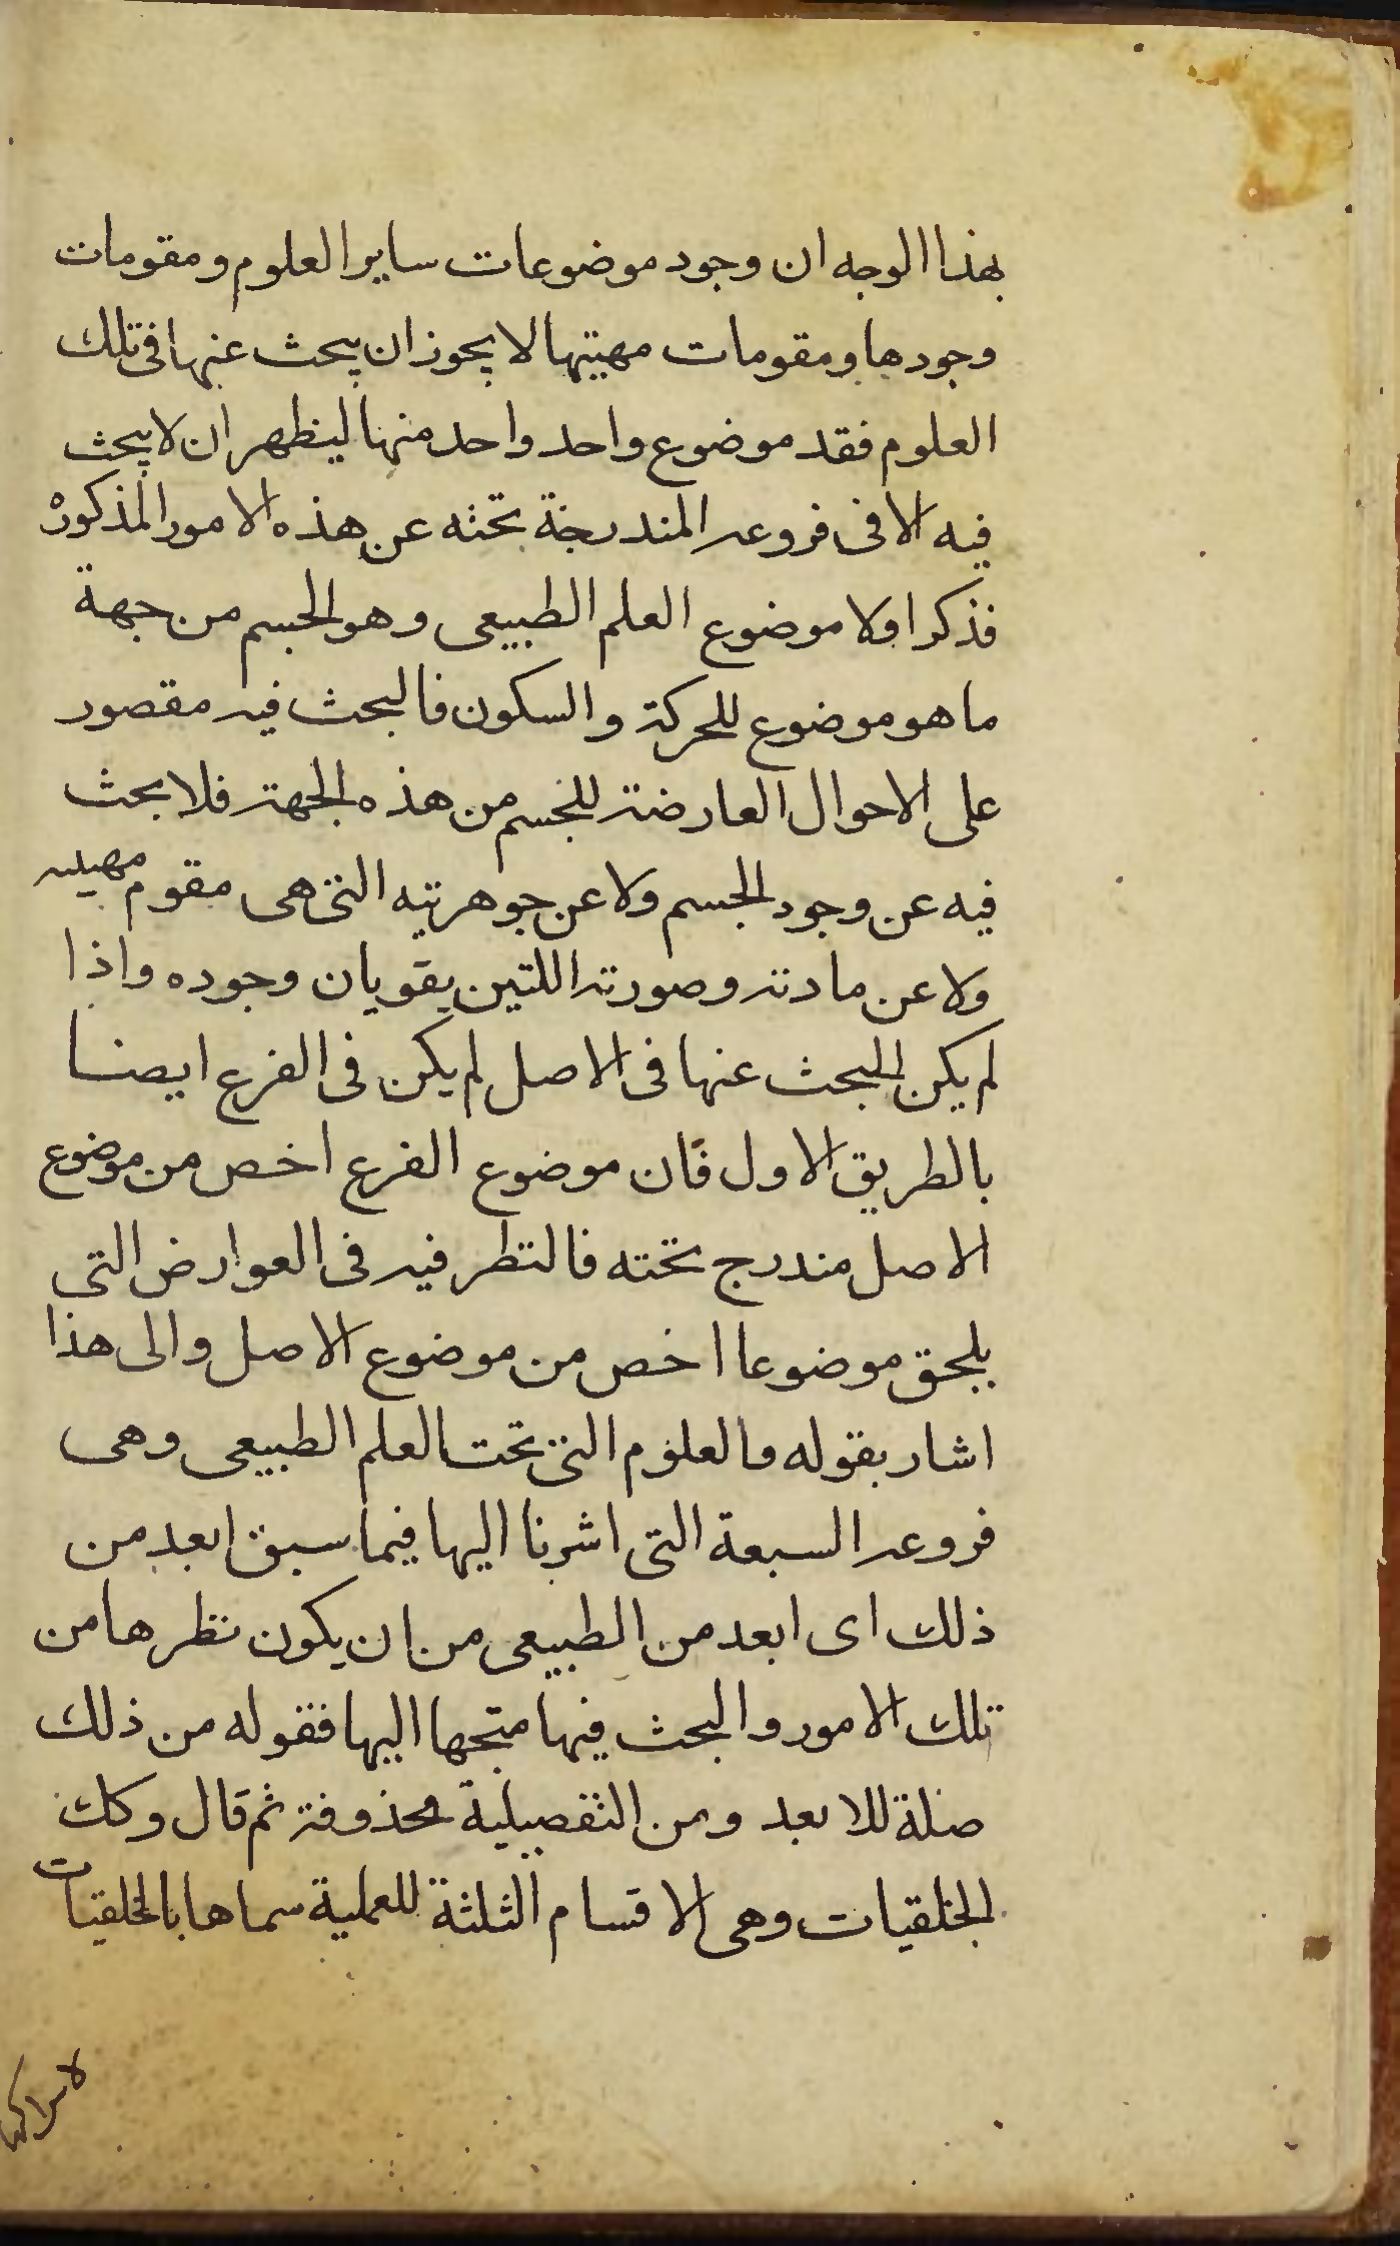 بهذا الوجه ان وجود موضوعات ساير العلوم و مقومات
وجودها و مقومات مهيتها لا يجوز ان يبحث عنها فى تلك
العلوم فقد موضوع واحد واحد منها ليظهر ان لا يبحث
فيه الا فى فروعه المندرجة تحته عن هذه الامور المذكورة
فذكر اولا موضوع العلم الطبيعى وهو الجسم من جهة
ما هو موضوع للحركة والسكون فالبحث فيه مقصور
على الاحوال العارضة للجسم من هذه الجهة فلا بحث
فيه عن وجود الجسم ولا عن جوهريته التى هى مقوم مهيته
ولا عن مادته وصورته اللتين يقويان وجوده واذا
لم يكن البحث عنها فى الاصل لم يكن فى الفرع ايضا
بالطريق الاول فان موضوع الفرع اخص من موضوع
الاصل مندرج تحته فالنظر فيه فى العوارض التى
يلحق موضوعا اخص من موضوع الاصل والى هذا
اشار بقوله والعلوم التى تحت العلم الطبيعى وهى
فروعه السبعة التى اشرنا اليها فيما سبق ابعد من
ذلك اى ابعد من الطبيعى من ان يكون نظرها من
تلك الامور والبحث فيها متجها اليها فقوله من ذلك
صلة للابعد ومن التفصيلية محذوفة ثم قال وكك
الخلقيات وهى الاقسام الثلثة للعملية سماها بالخلقيات